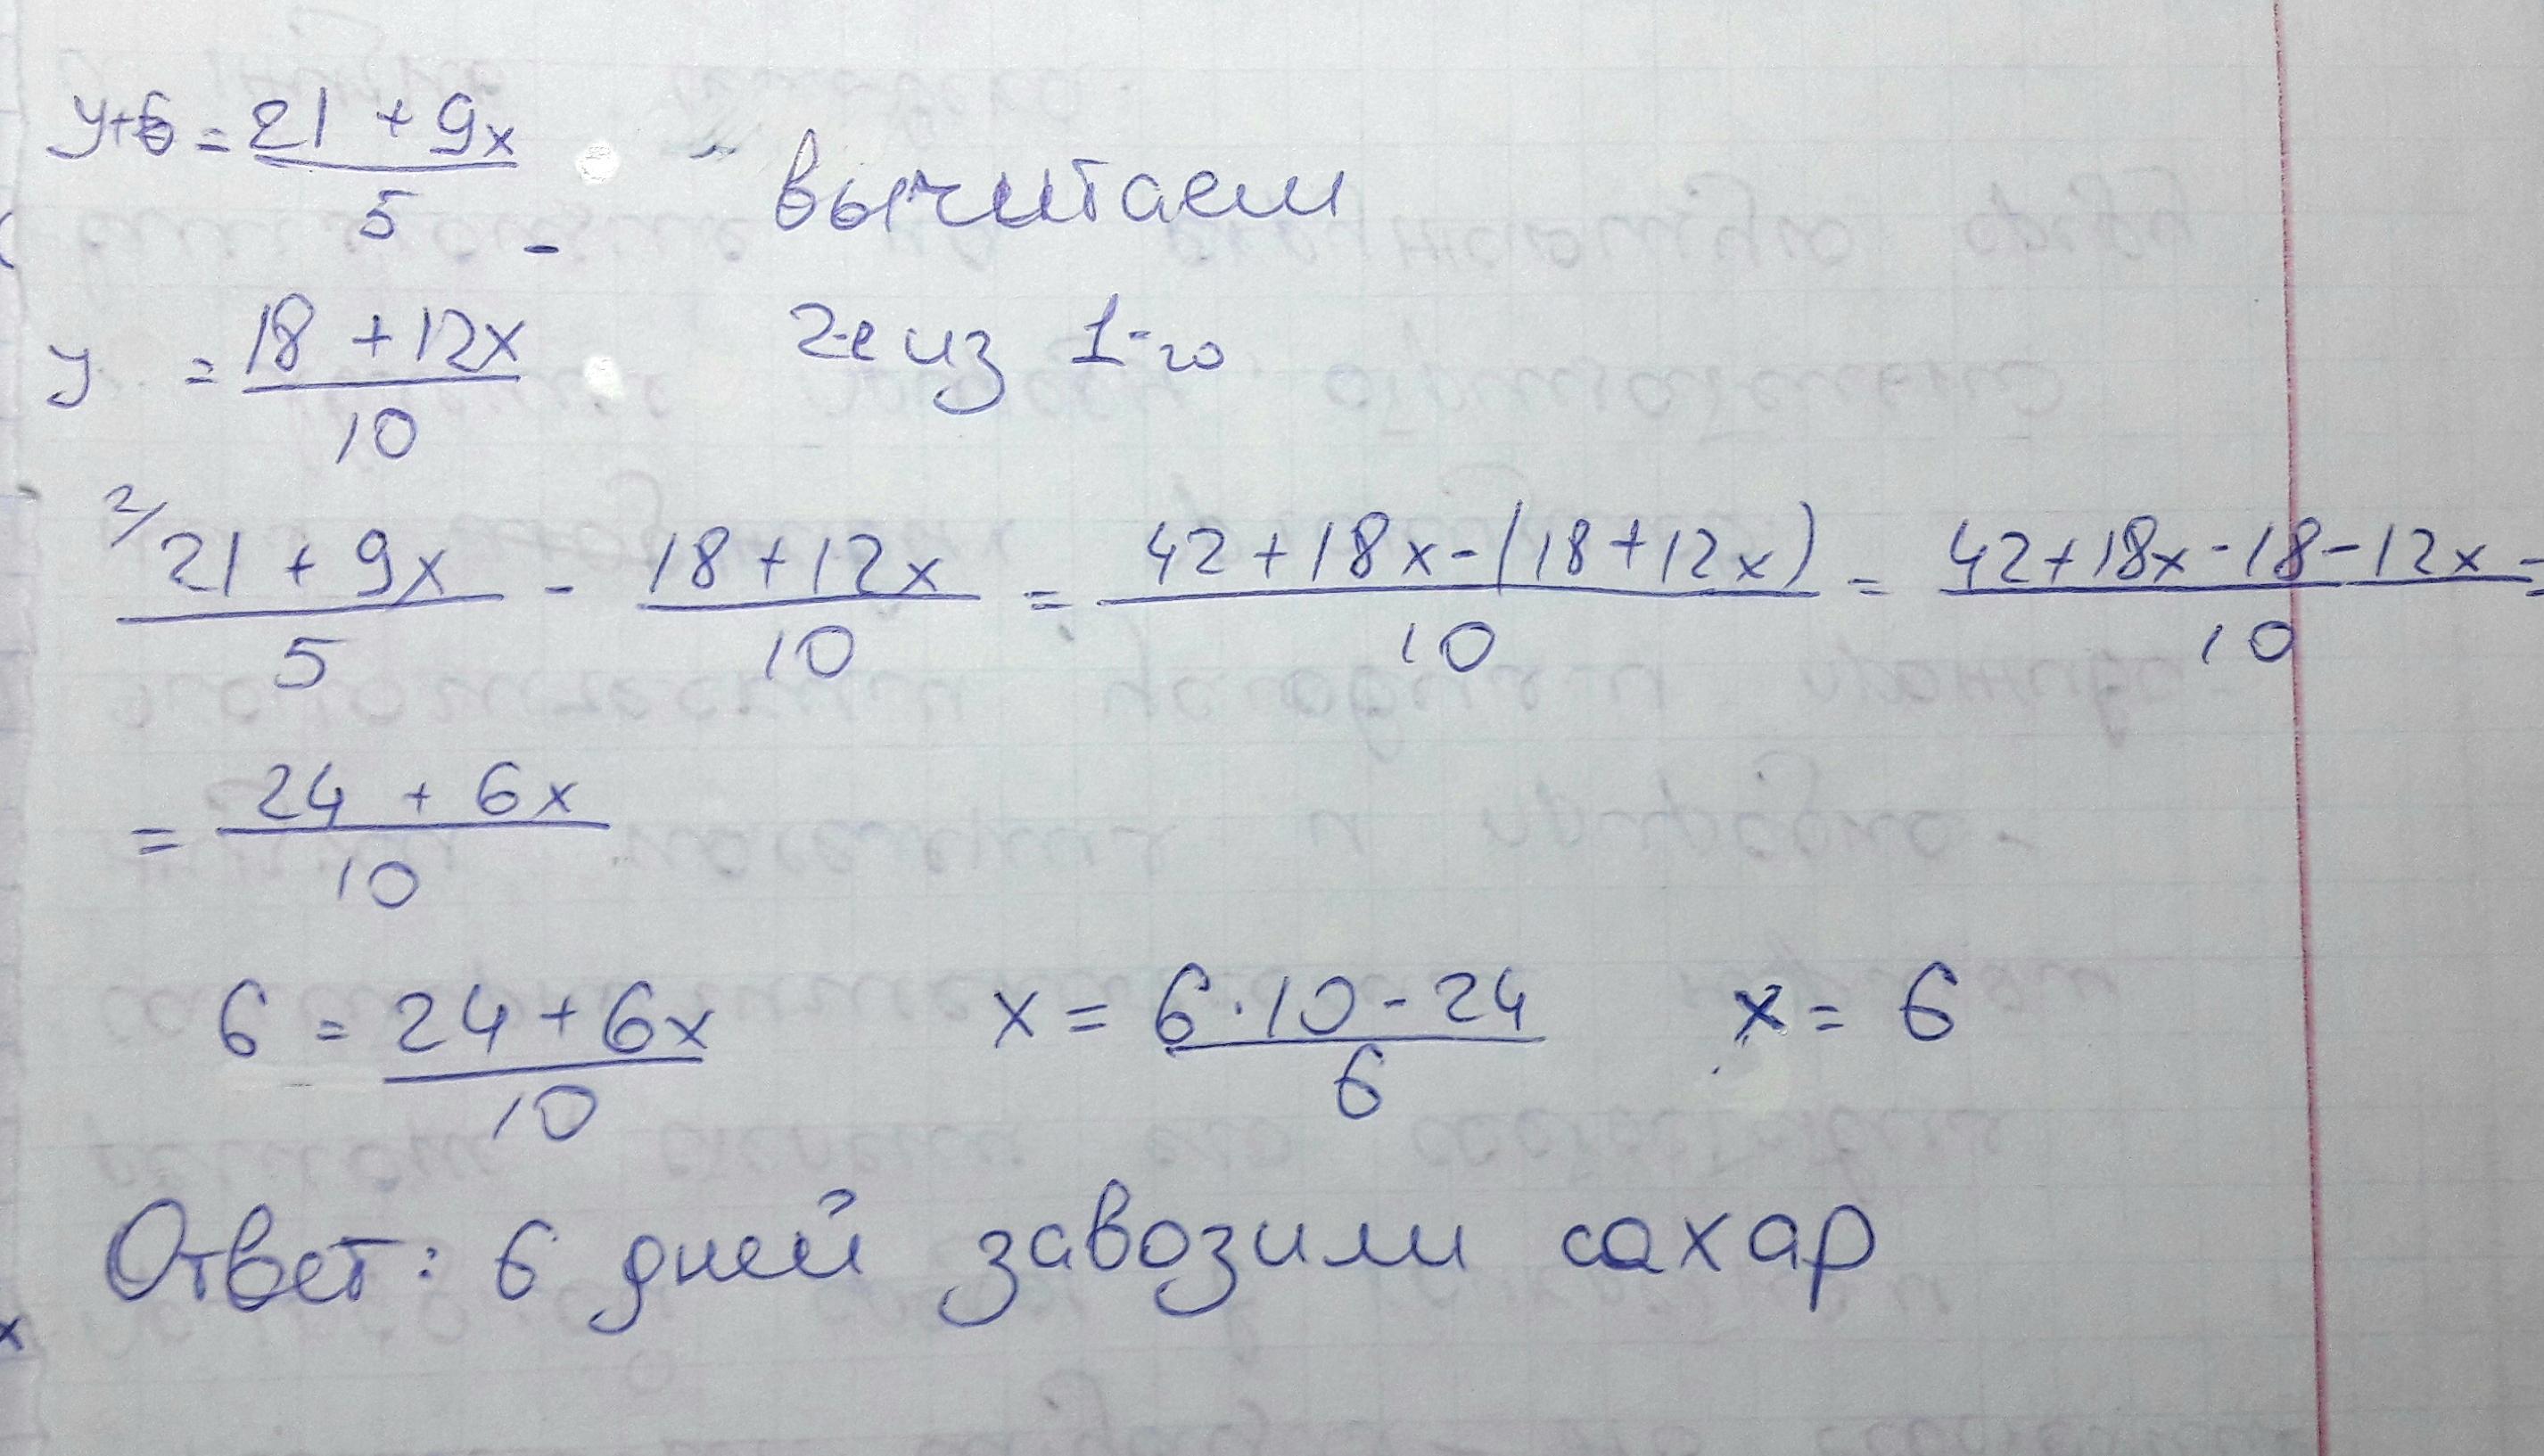 y+6 = 21 + 9x
5 -
вычитаем
y = 18 + 12x
10
2-е из 1-го
2/ 21 + 9x - 18 + 12x = 42 + 18x - (18 + 12x) = 42 + 18x - 18 - 12x =
5 10 10 10
= 24 + 6x
10
6 = 24 + 6x x = 6 · 10 - 24 x = 6
10 6
Ответ: 6 дней завозили сахар